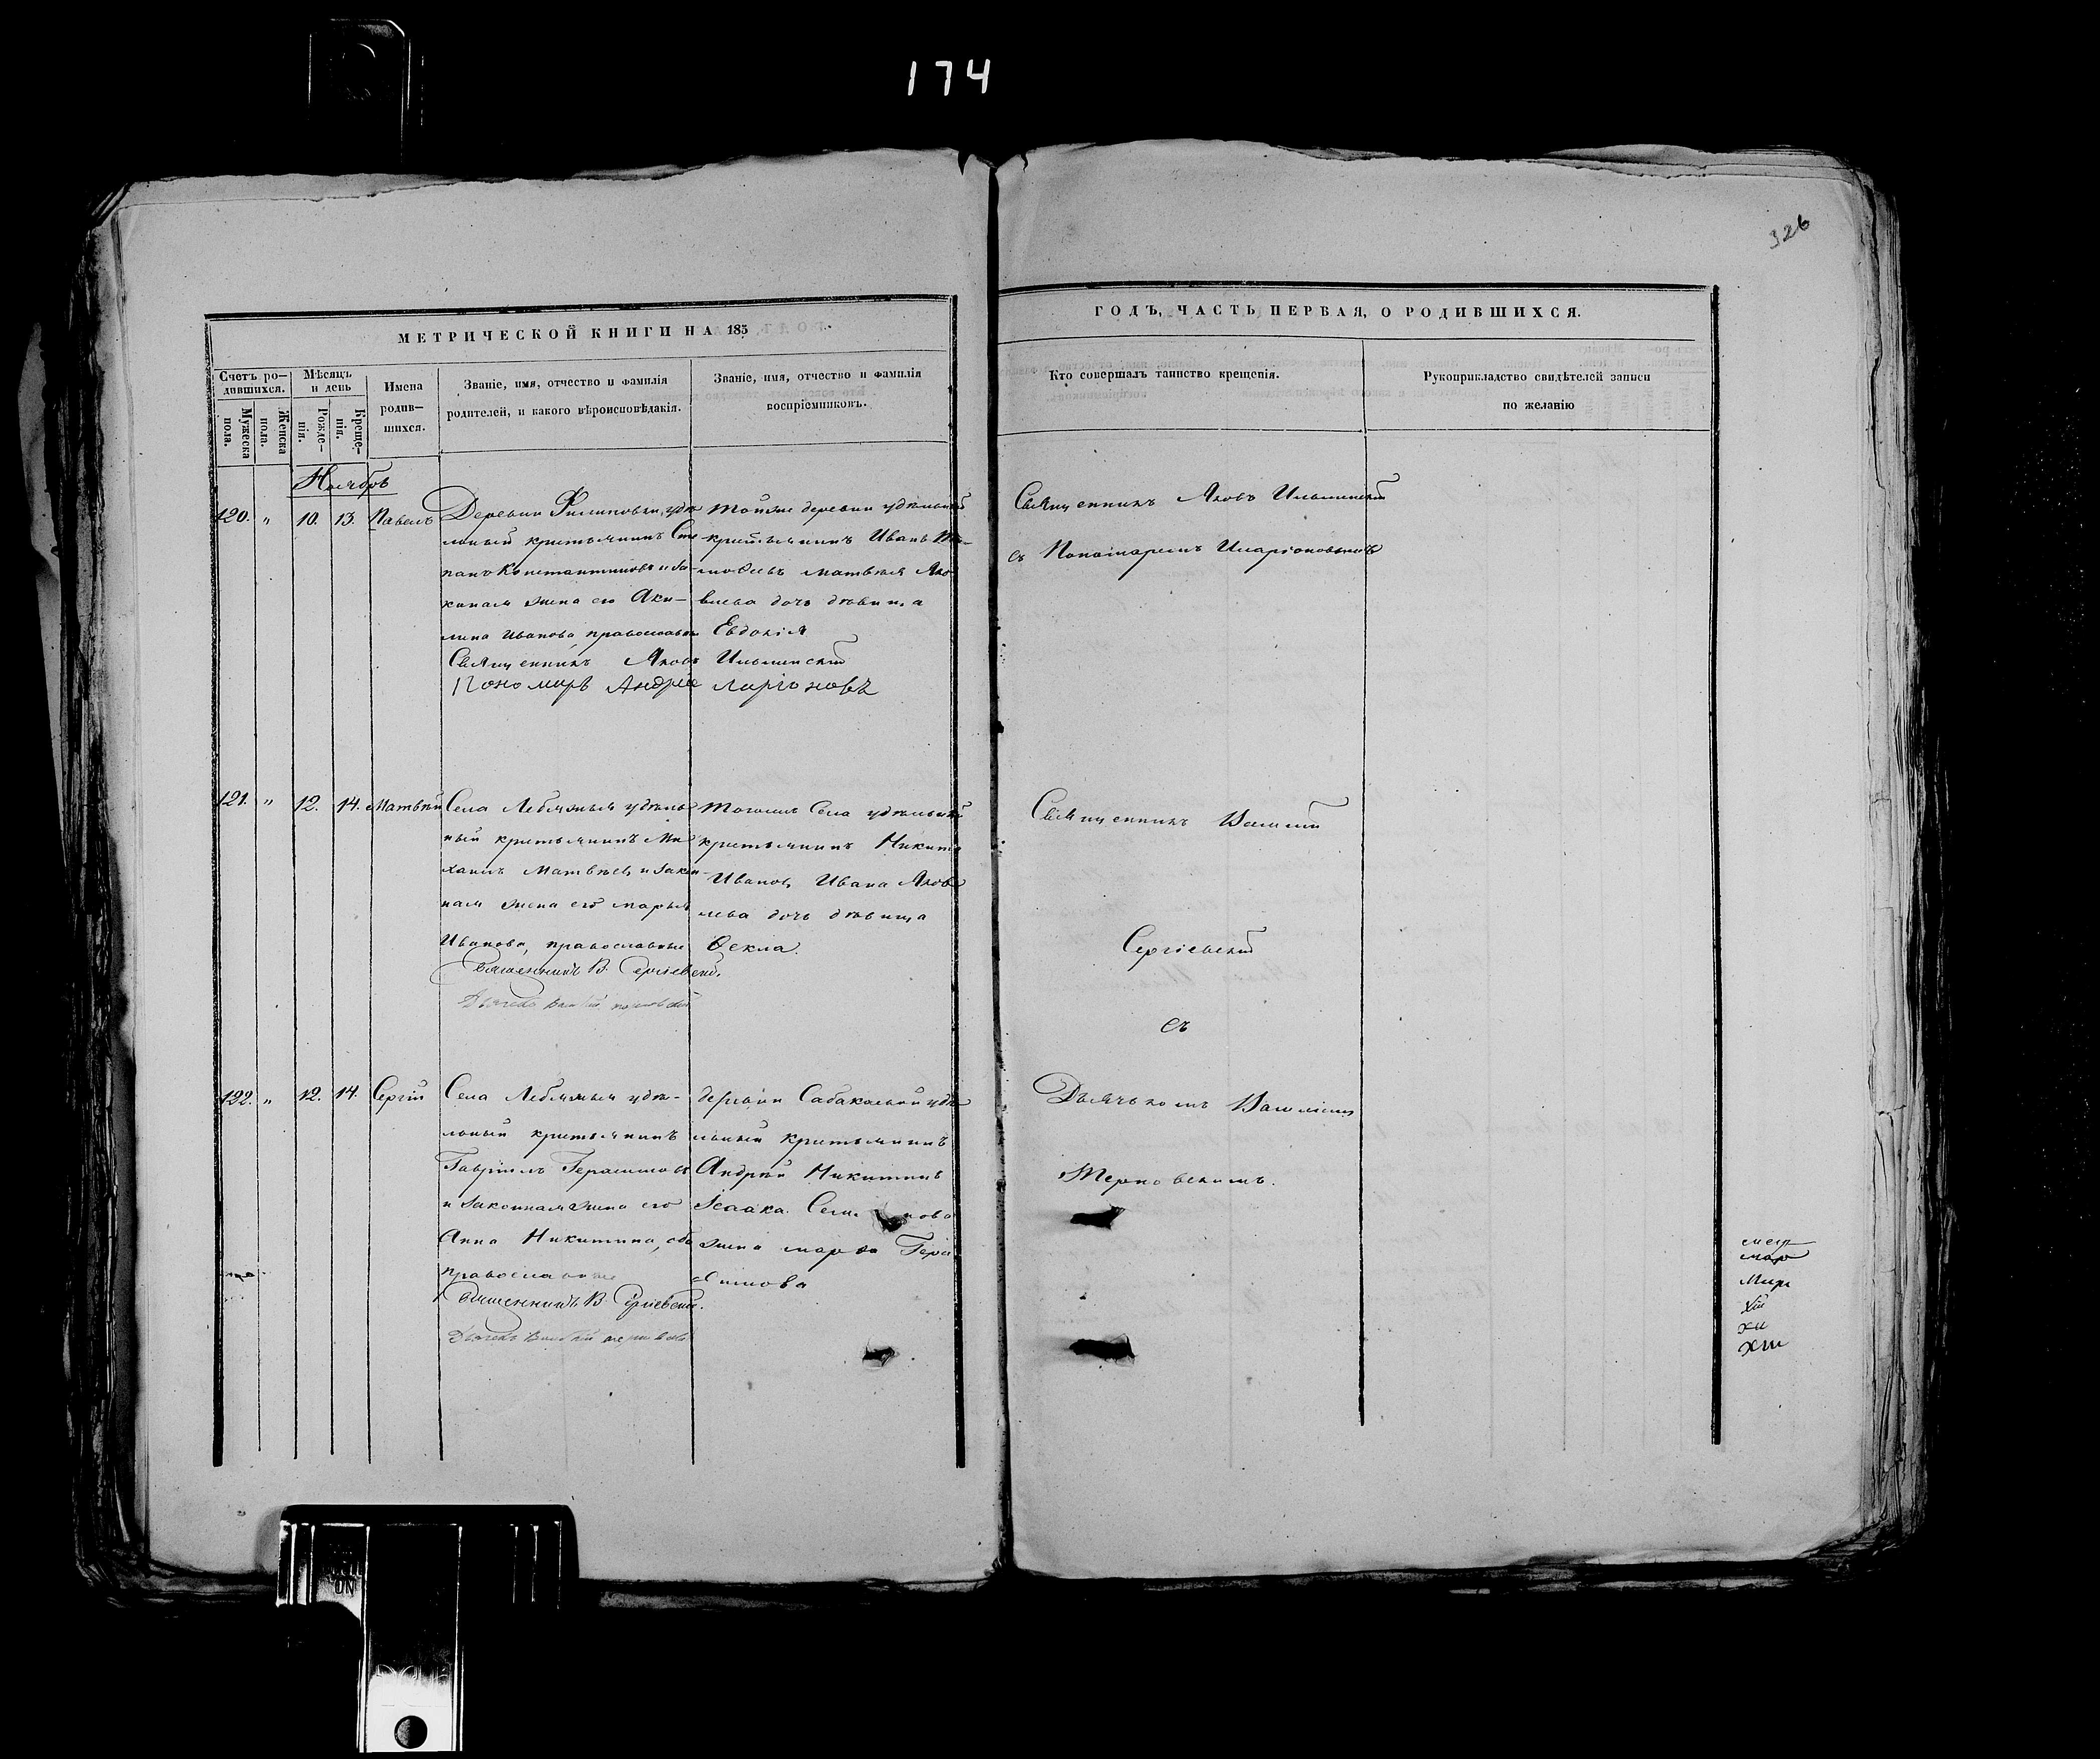 174
326
МЕТРИЧЕСКОЙ КНИГИ НА 185
ГОДЪ, ЧАСТЬ ПЕРВАЯ, О РОДИВШИХСЯ.
Счетъ ро-
дившихся.
Мужеска
пола.
Женска
пола.
Мѣсяцъ
и день
Рожде-
нія.
Креще-
нія.
Имена
родив-
шихся.
Званіе, имя, отчество и фамилія
родителей, и какого вѣроисповѣданія.
Званіе, имя, отчество и фамилія
воспріемниковъ.
Кто совершалъ таинство крещенія.
Рукоприкладство свидѣтелей записи
по желанію
Ноябрь
120. " 10. 13. Павелъ
Деревни Филиповки, удѣ
льный крестьянинъ Сте
панъ Константиновъ и за-
конная жена его Аки-
лина Иванова, православн
Священникъ Яковъ Ильинскій
Пономарь Андрей Ларіоновъ
тойже деревни удѣльный
крестьянинъ Иванъ
Матвѣя Яко
влева дочь дѣвица
Евдокія
Священникъ Яковъ Ильинскій
съ Пономаремъ Иларіоновымъ
121. " 12. 14. Матвѣй
Села Лебяжья удѣль
ный крестьянинъ Ми
хаилъ Матвѣевъ и закон
ная жена его Марья
Иванова, православные
Священникъ В. Сергіевскій.
Дьячекъ Василій
тогожъ Села удѣльный
крестьянинъ Никита
Ивановъ, Ивана Яков
лева дочь дѣвица
Ѳекла.
Священникъ Василій
Сергіевскій
съ
Дьячькомъ Василіемъ
Терновскимъ.
122. " 12. 14. Сергій
Села Лебяжья удѣ-
льный крестьянинъ
Гавріилъ Герасимовъ
и законная жена его
Анна Никитина, оба
православные
Священникъ В. Сергіевскій.
Дьячекъ Василій Терновскій
деревни Сабакаевой удѣ
льный крестьянинъ
Андрей Никитинъ
Исаака
жена Марья Гера
симова